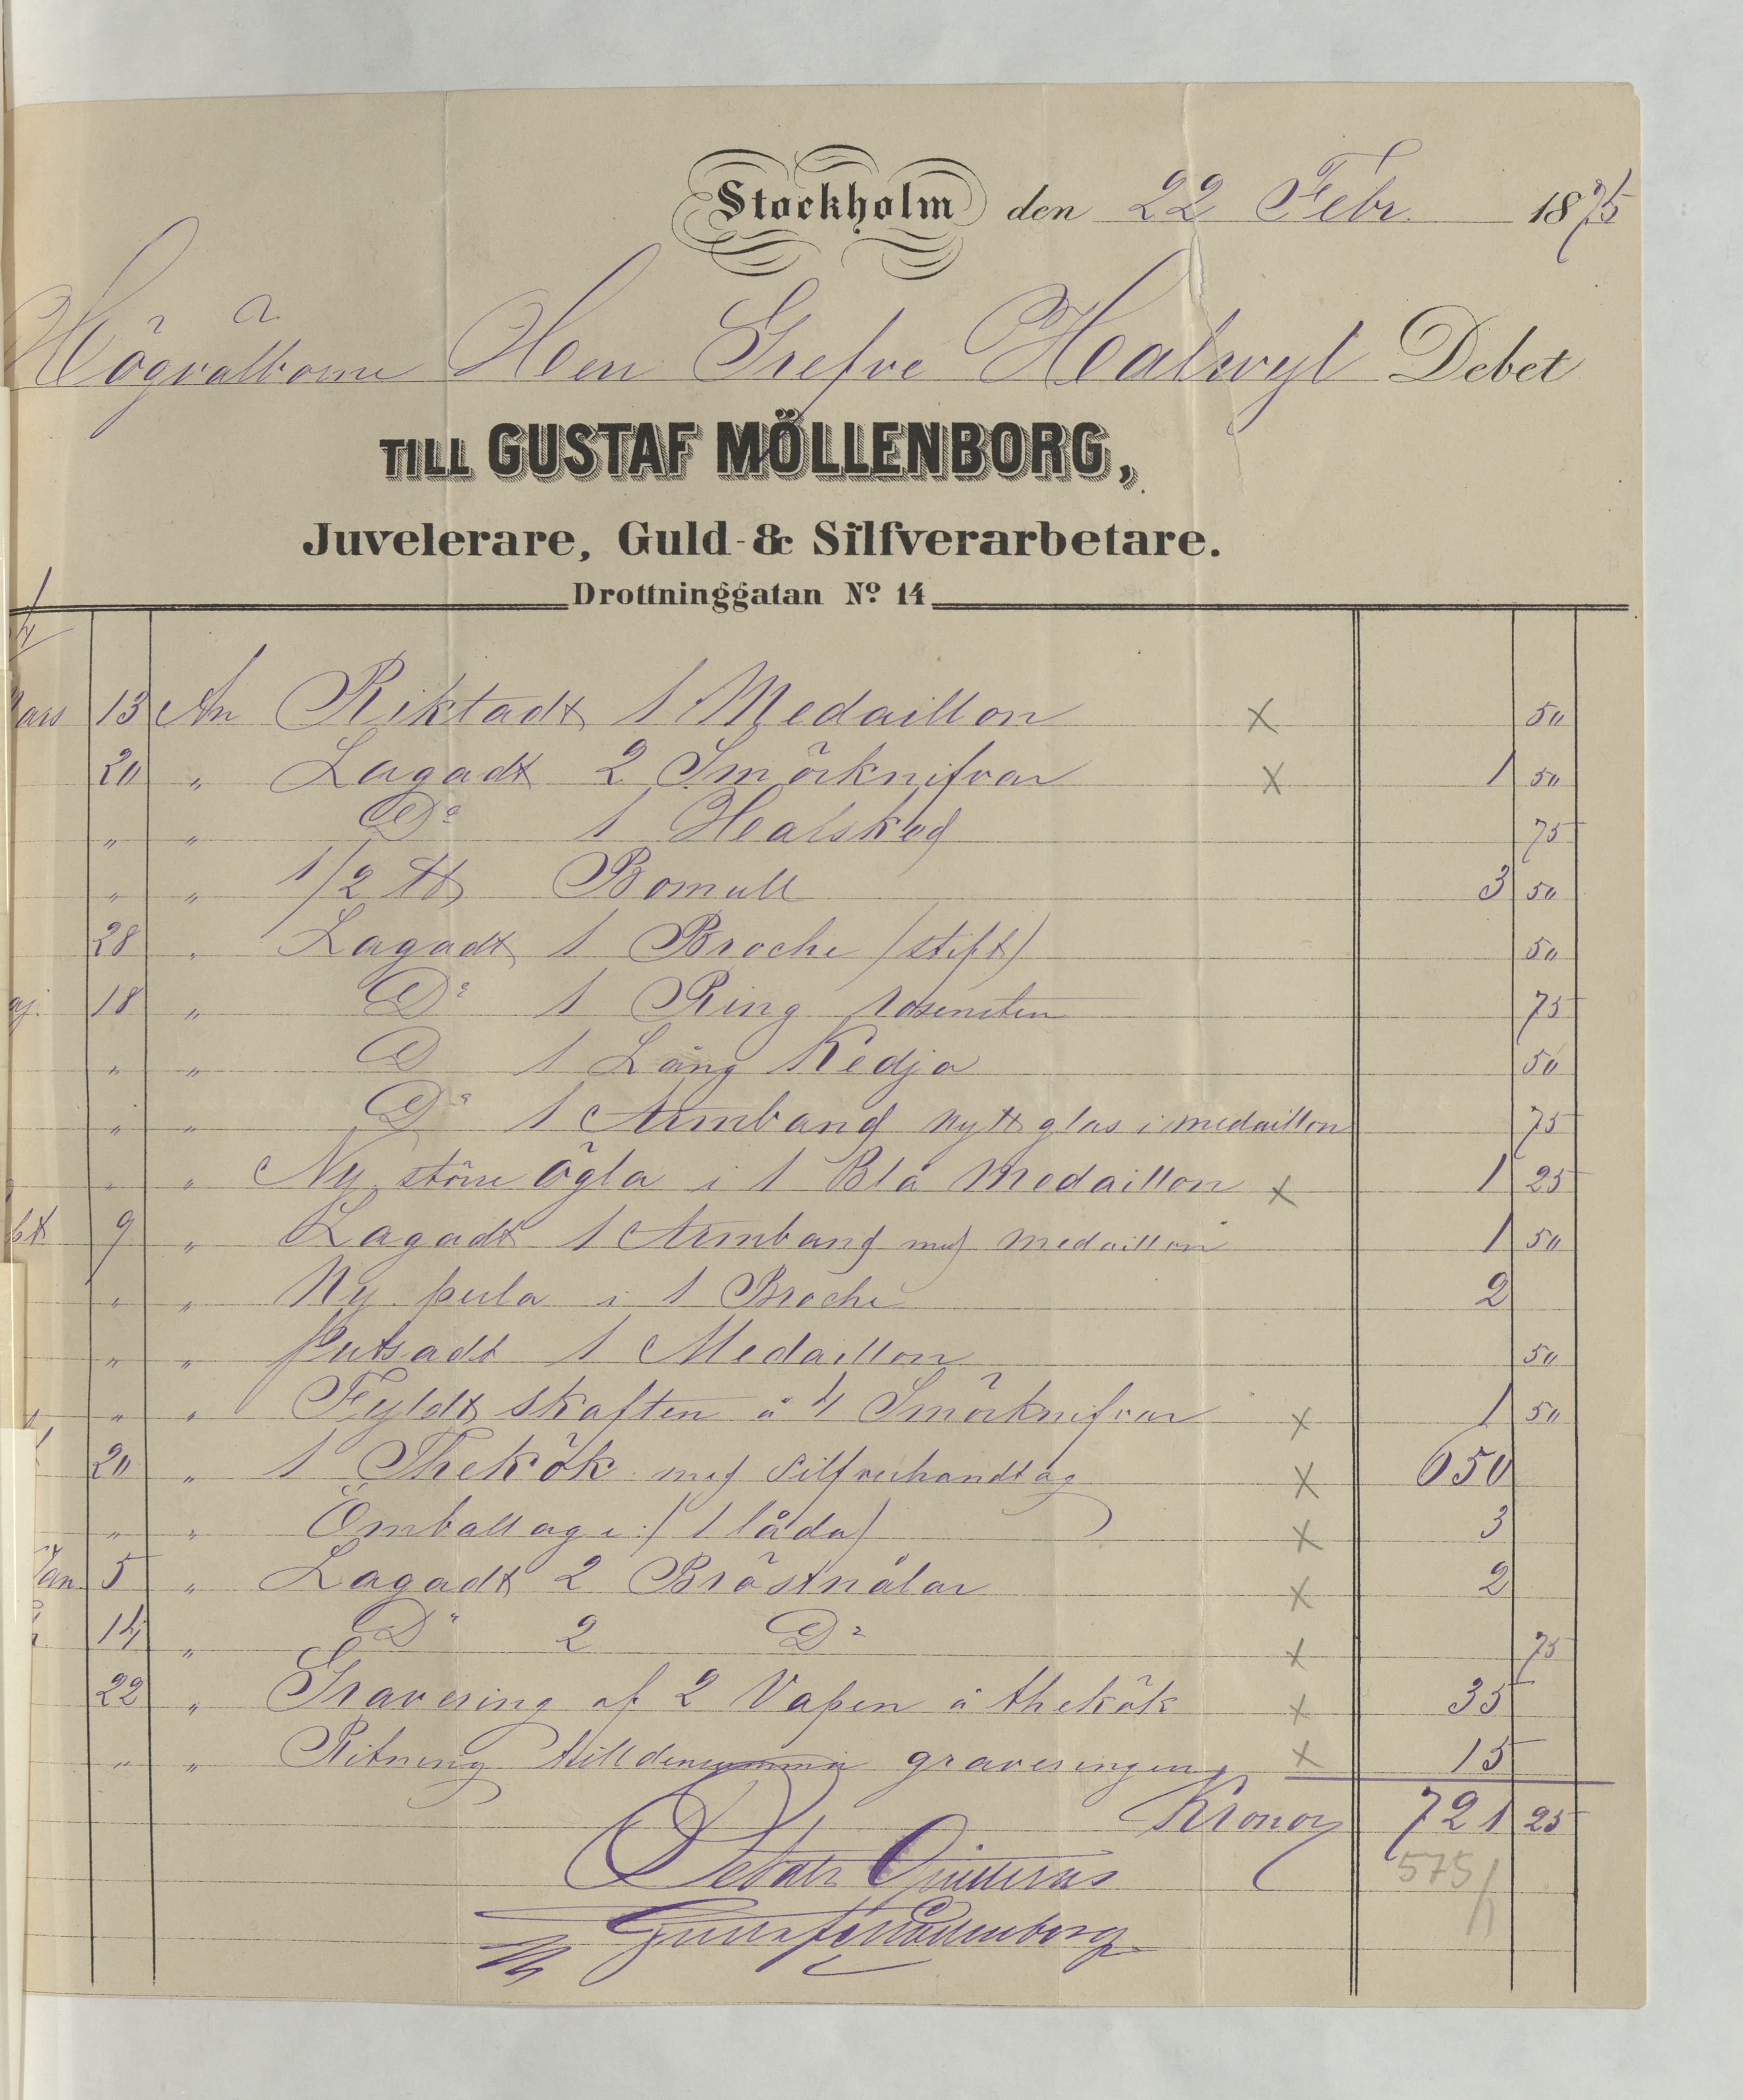 Stockholm den 22 Febr. 1875
Högvälborne Herr Grefve Hallwyl Debet
TILL GUSTAF MÖLLENBORG,
Juvelerare, Guld- & Silfverarbetare.
Drottninggatan No 14
13 An Riktadt 1 Medaillon x 50
20 " Lagadt 2 Smörknifvar x 1 50
" " Do 1 Halsked 75
" " 1/2 ℔ Bomull 3 50
28 " Lagadt 1 Broche (stift) 50
18 " Do 1 Ring 75
" " D 1 Lång Kedja 50
" " Do 1 Armband nytt glas i medaillon 75
" " Ny större Ögla i 1 Blå Medaillon x 1 25
9 " Lagadt 1 Armband med medaillon 1 50
" " Ny perla i 1 Broche 2
" " putsadt 1 Medaillon 50
" " Fyldt skaften å 4 Smörknifvar x 1 50
20 " 1 Thekök med Silfverhandtag x 650
" " Emballage (1 låda) x 3
Jan 5 " Lagadt 2 Bröstnålar x 2
14 " Do 2 Do x 75
22 " Gravering af 2 Vapen å thekök x 35
" " Ritning till graveringen x 15
Kronor 721 25
575
Betalt Qvitteras
Gustaf Möllenborg